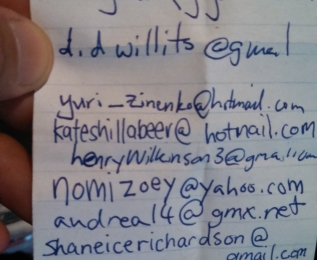 d.d willits @gmail
yuri_zinenko@hotmail.com
kateshillabeer@ hotmail.com
henryWilkinson3@gmail.com
nomizoey@yahoo.com
andrea14@gmx.net
shaneicerichardson@
gmail.com